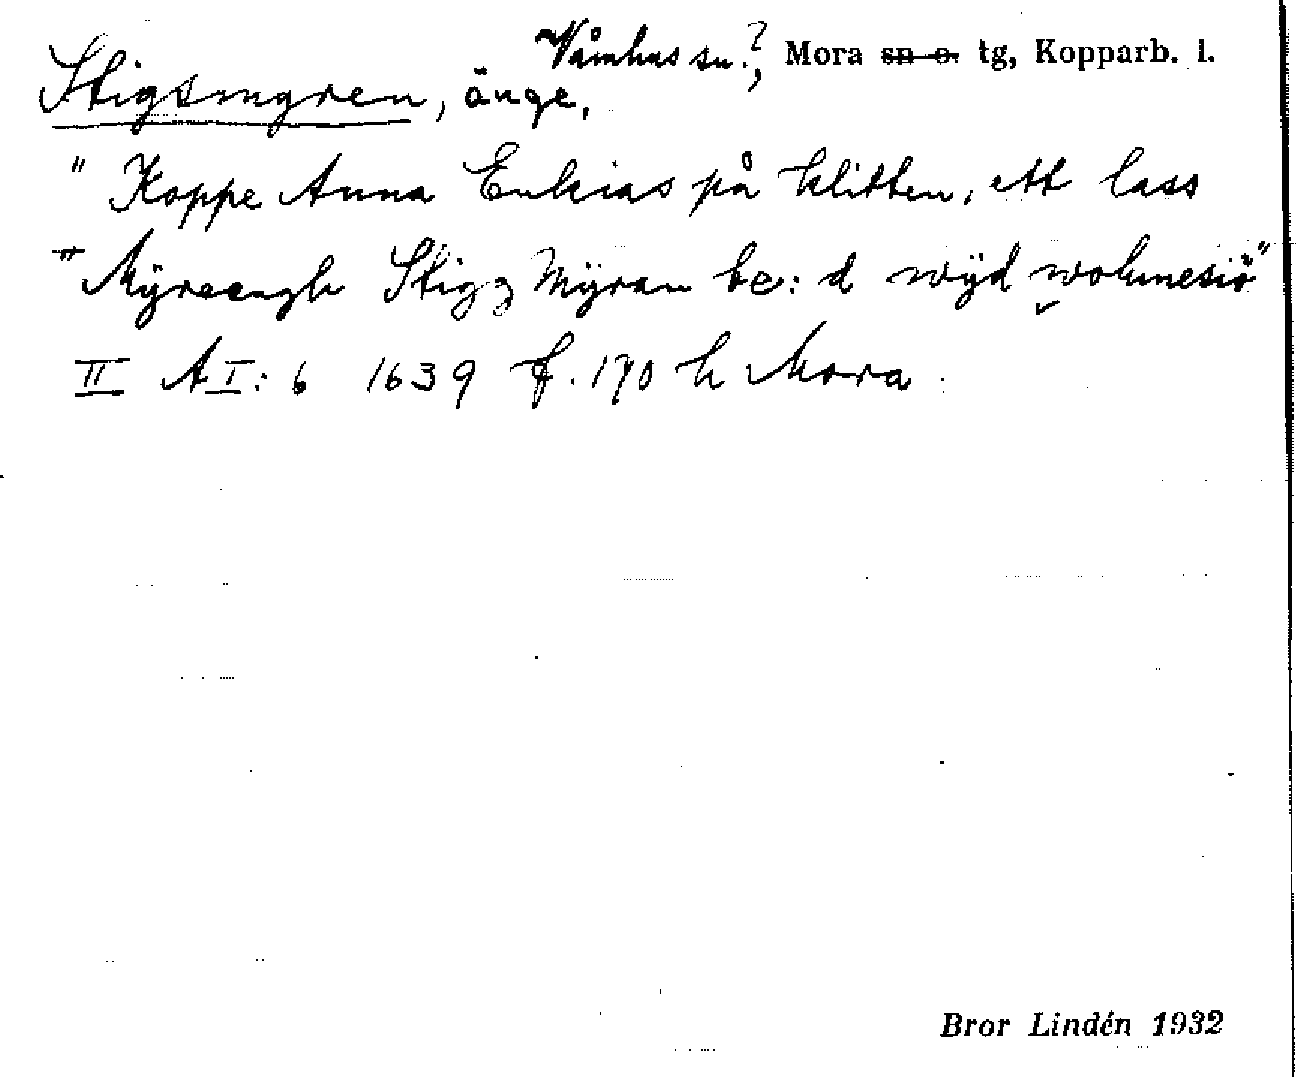 Våmhus sn.?, Mora sn o. tg, Kopparb. l.
Stigsmyren, änge,
" Koppe Anna Enkias på klitten, ett lass
" Mÿreengh Stigz Mÿran be: d wÿd wolunesiö"
II A I: 6 1639 f. 170 h Mora.
Bror Lindén 1932